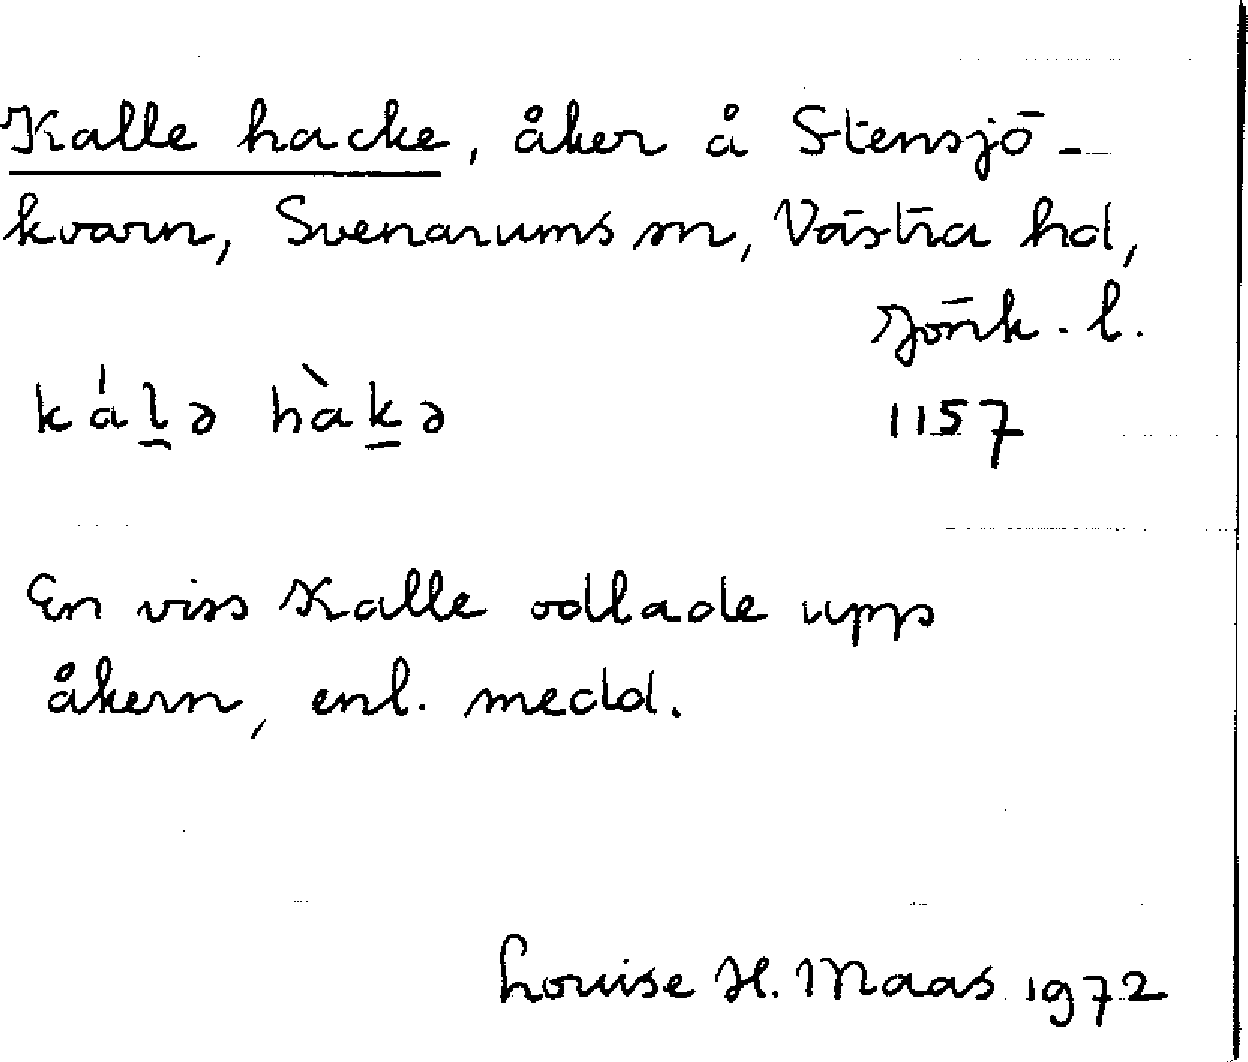 Kalle hacke, åker å Stensjö-
kvarn, Svenarums sn, Västra hd,
Jönk. l.
kál̲ə hàk̲ə 1157
En viss Kalle odlade upp
åkern, enl. medd.
Louise H. Maas 1972